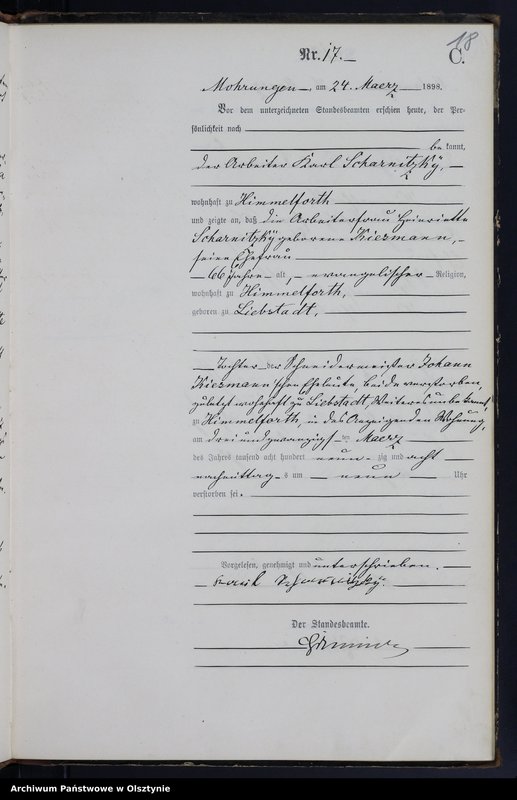 18
Nr. 17.
C.
Mohrungen, am 24. Maerz 1898.
Vor dem unterzeichneten Standesbeamten erschien heute, der Per-
sönlichkeit nach
bekannt,
der Arbeiter Karl Scharnitzky,
wohnhaft zu Himmelforth
und zeigte an, daß die Arbeiterfrau Henriette
Scharnitzky geborene Kiezmann,
seine Ehefrau
66 Jahre alt, evangelischer Religion,
wohnhaft zu Himmelforth,
geboren zu Liebstadt,
Tochter der Schneidermeister Johann
Kiezmann'schen Eheleute, beide verstorben,
zuletzt wohnhaft zu Liebstadt, Weiteres unbekannt,
zu Himmelforth, in des Anzeigenden Wohnung,
am dreiundzwanzigsten Maerz
des Jahres tausend acht hundert neunzig und acht
nachmittags um neun Uhr
verstorben sei.
Vorgelesen, genehmigt und unterschrieben.
Karl Scharnitzky.
Der Standesbeamte.
Archiwum Państwowe w Olsztynie